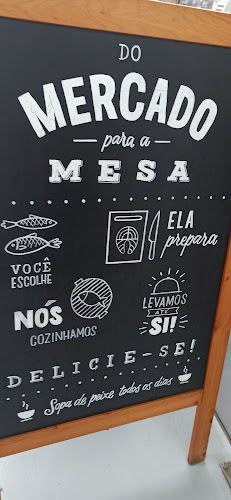 DO
MERCADO
para a
MESA
VOCÊ
ESCOLHE
ELA
prepara
NÓS
COZINHAMOS
LEVAMOS
ATÉ
SI!!
DELICIE-SE!
Sopa de peixe todos os dias